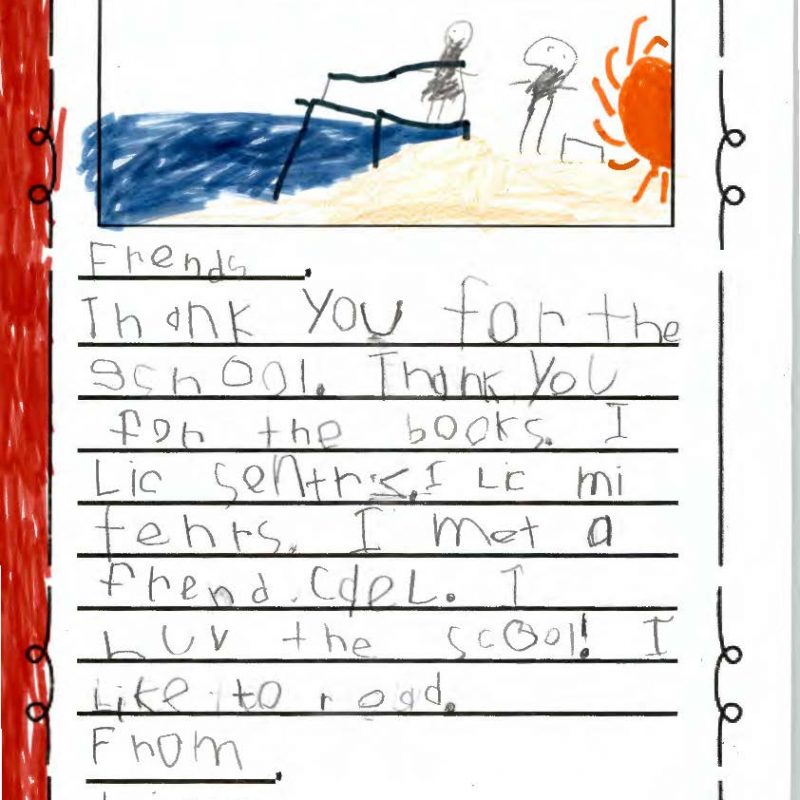 Frends,
Thank You for the
school. Thank You
for the books. I
Lic sentrs. I Lic mi
tehrs. I met a
frend. Cael. I
Luv the scool! I
Like to read.
From,